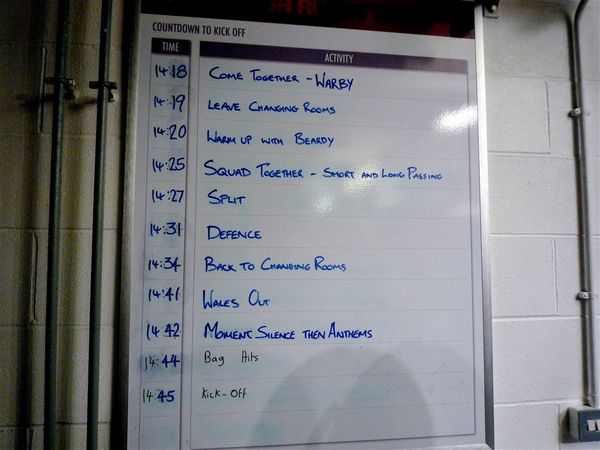 COUNTDOWN TO KICK OFF
TIME ACTIVITY
14:18 COME TOGETHER - WARBY
14:19 LEAVE CHANGING ROOMS
14:20 WARM UP WITH BEARDY
14:25 SQUAD TOGETHER - SHORT AND LONG PASSING
14:27 SPLIT
14:31 DEFENCE
14:34 BACK TO CHANGING ROOMS
14:41 WALES OUT
14:42 MOMENT SILENCE THEN ANTHEMS
14:44 Bag Hits
14:45 Kick-Off